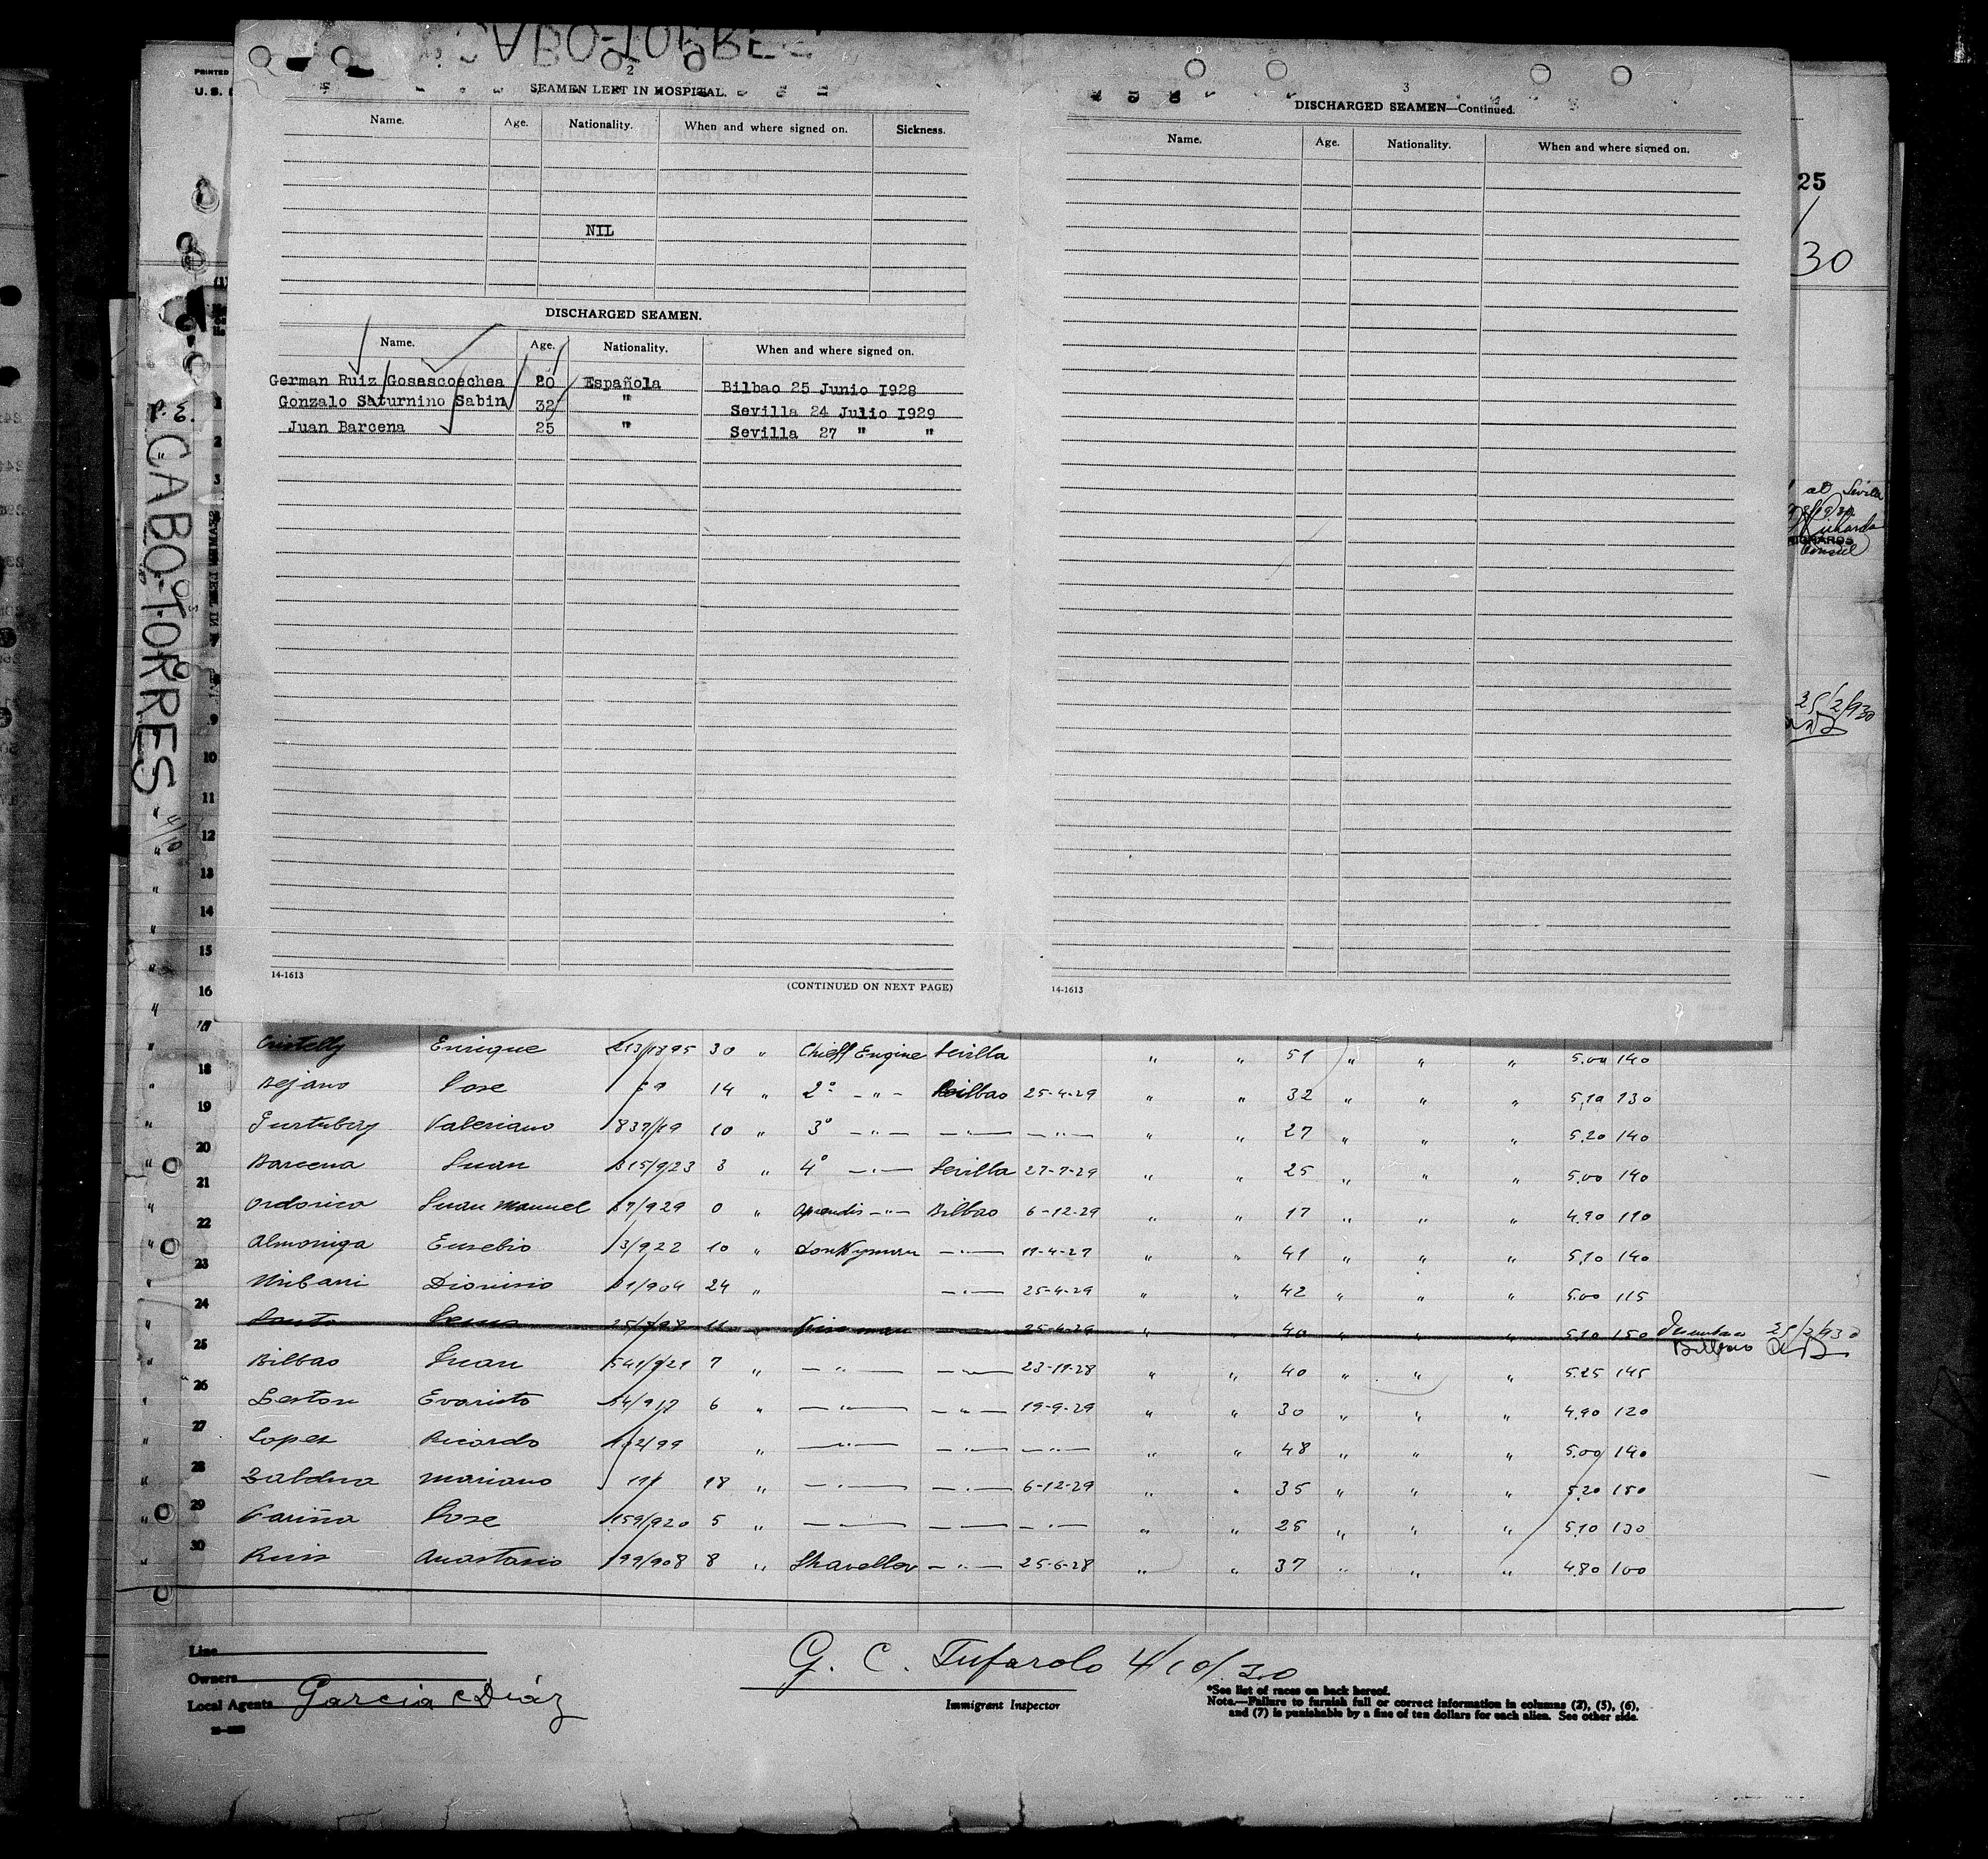 CABO-TORRES
PRINTED
U. S.
2
SEAMEN LEFT IN HOSPITAL.
Name. Age. Nationality. When and where signed on. Sickness.
NIL
DISCHARGED SEAMEN.
Name. Age. Nationality. When and where signed on.
German Ruiz Gosascoechea 20 Española Bilbao 25 Junio 1928
Gonzalo Saturnino Sabin 32 " Sevilla 24 Julio 1929
Juan Barcena 25 " Sevilla 27 " "
14-1613
(CONTINUED ON NEXT PAGE)
3
DISCHARGED SEAMEN—Continued.
Name. Age. Nationality. When and where signed on.
14-1613
25
30
at Sevilla
RICHARDS
Consul
25/2/930
P. E. CABO-TORRES - 4/10
2
3
9
10
11
12
13
14
15
16
17
Enrique 30 " Chieff Engine Sevilla " " 51 " " " 5,00 140
18 Bejano Jose 14 " 2º -"- Bilbao 25-4-29 " " 32 " " " 5,10 130
19 Valeriano 10 " 3º -"- -"- -"- " " 27 " " " 5.20 140
20 Barcena Juan 3 " 4º -"- Sevilla 27-7-29 " " 25 " " " 5,00 140
21 Ordorica Juan Manuel 0 " aprendis -"- Bilbao 6-12-29 " " 17 " " " 4.90 110
22 Almoniga Eusebio 10 " Donkyman -"- 11-4-27 " " 41 " " " 5,10 140
23 Uribarri Dionisio 24 " -"- 25-4-29 " " 42 " " " 5.00 115
24 11 " Fireman -"- 25-4-29 " " 40 " " " 5.10 150 25/2/930
Bilbao
25 Bilbao Juan 541/921 7 " -"- -"- 23-11-28 " " 40 " " " 5.25 145
26 Leston Evaristo 6 " -"- -"- 19-9-29 " " 30 " " " 4,90 120
27 Lopez Ricardo " -"- -"- -"- " " 48 " " " 5.00 140
28 Zaldua Mariano 18 " -"- -"- 6-12-29 " " 35 " " " 5.20 150
29 Fariña Jose 159/920 5 " -"- -"- -"- " " 25 " " " 5,10 130
30 Ruis Anastasio 199/908 8 " -"- 25-6-28 " " 37 " " " 4.80 100
Line
Owners
Local Agents Garcia & Diáz
G. C. Tufarolo 4/10/30
Immigrant Inspector
*See list of races on back hereof.
Note.—Failure to furnish full or correct information in columns (2), (5), (6),
and (7) is punishable by a fine of ten dollars for each alien. See other side.